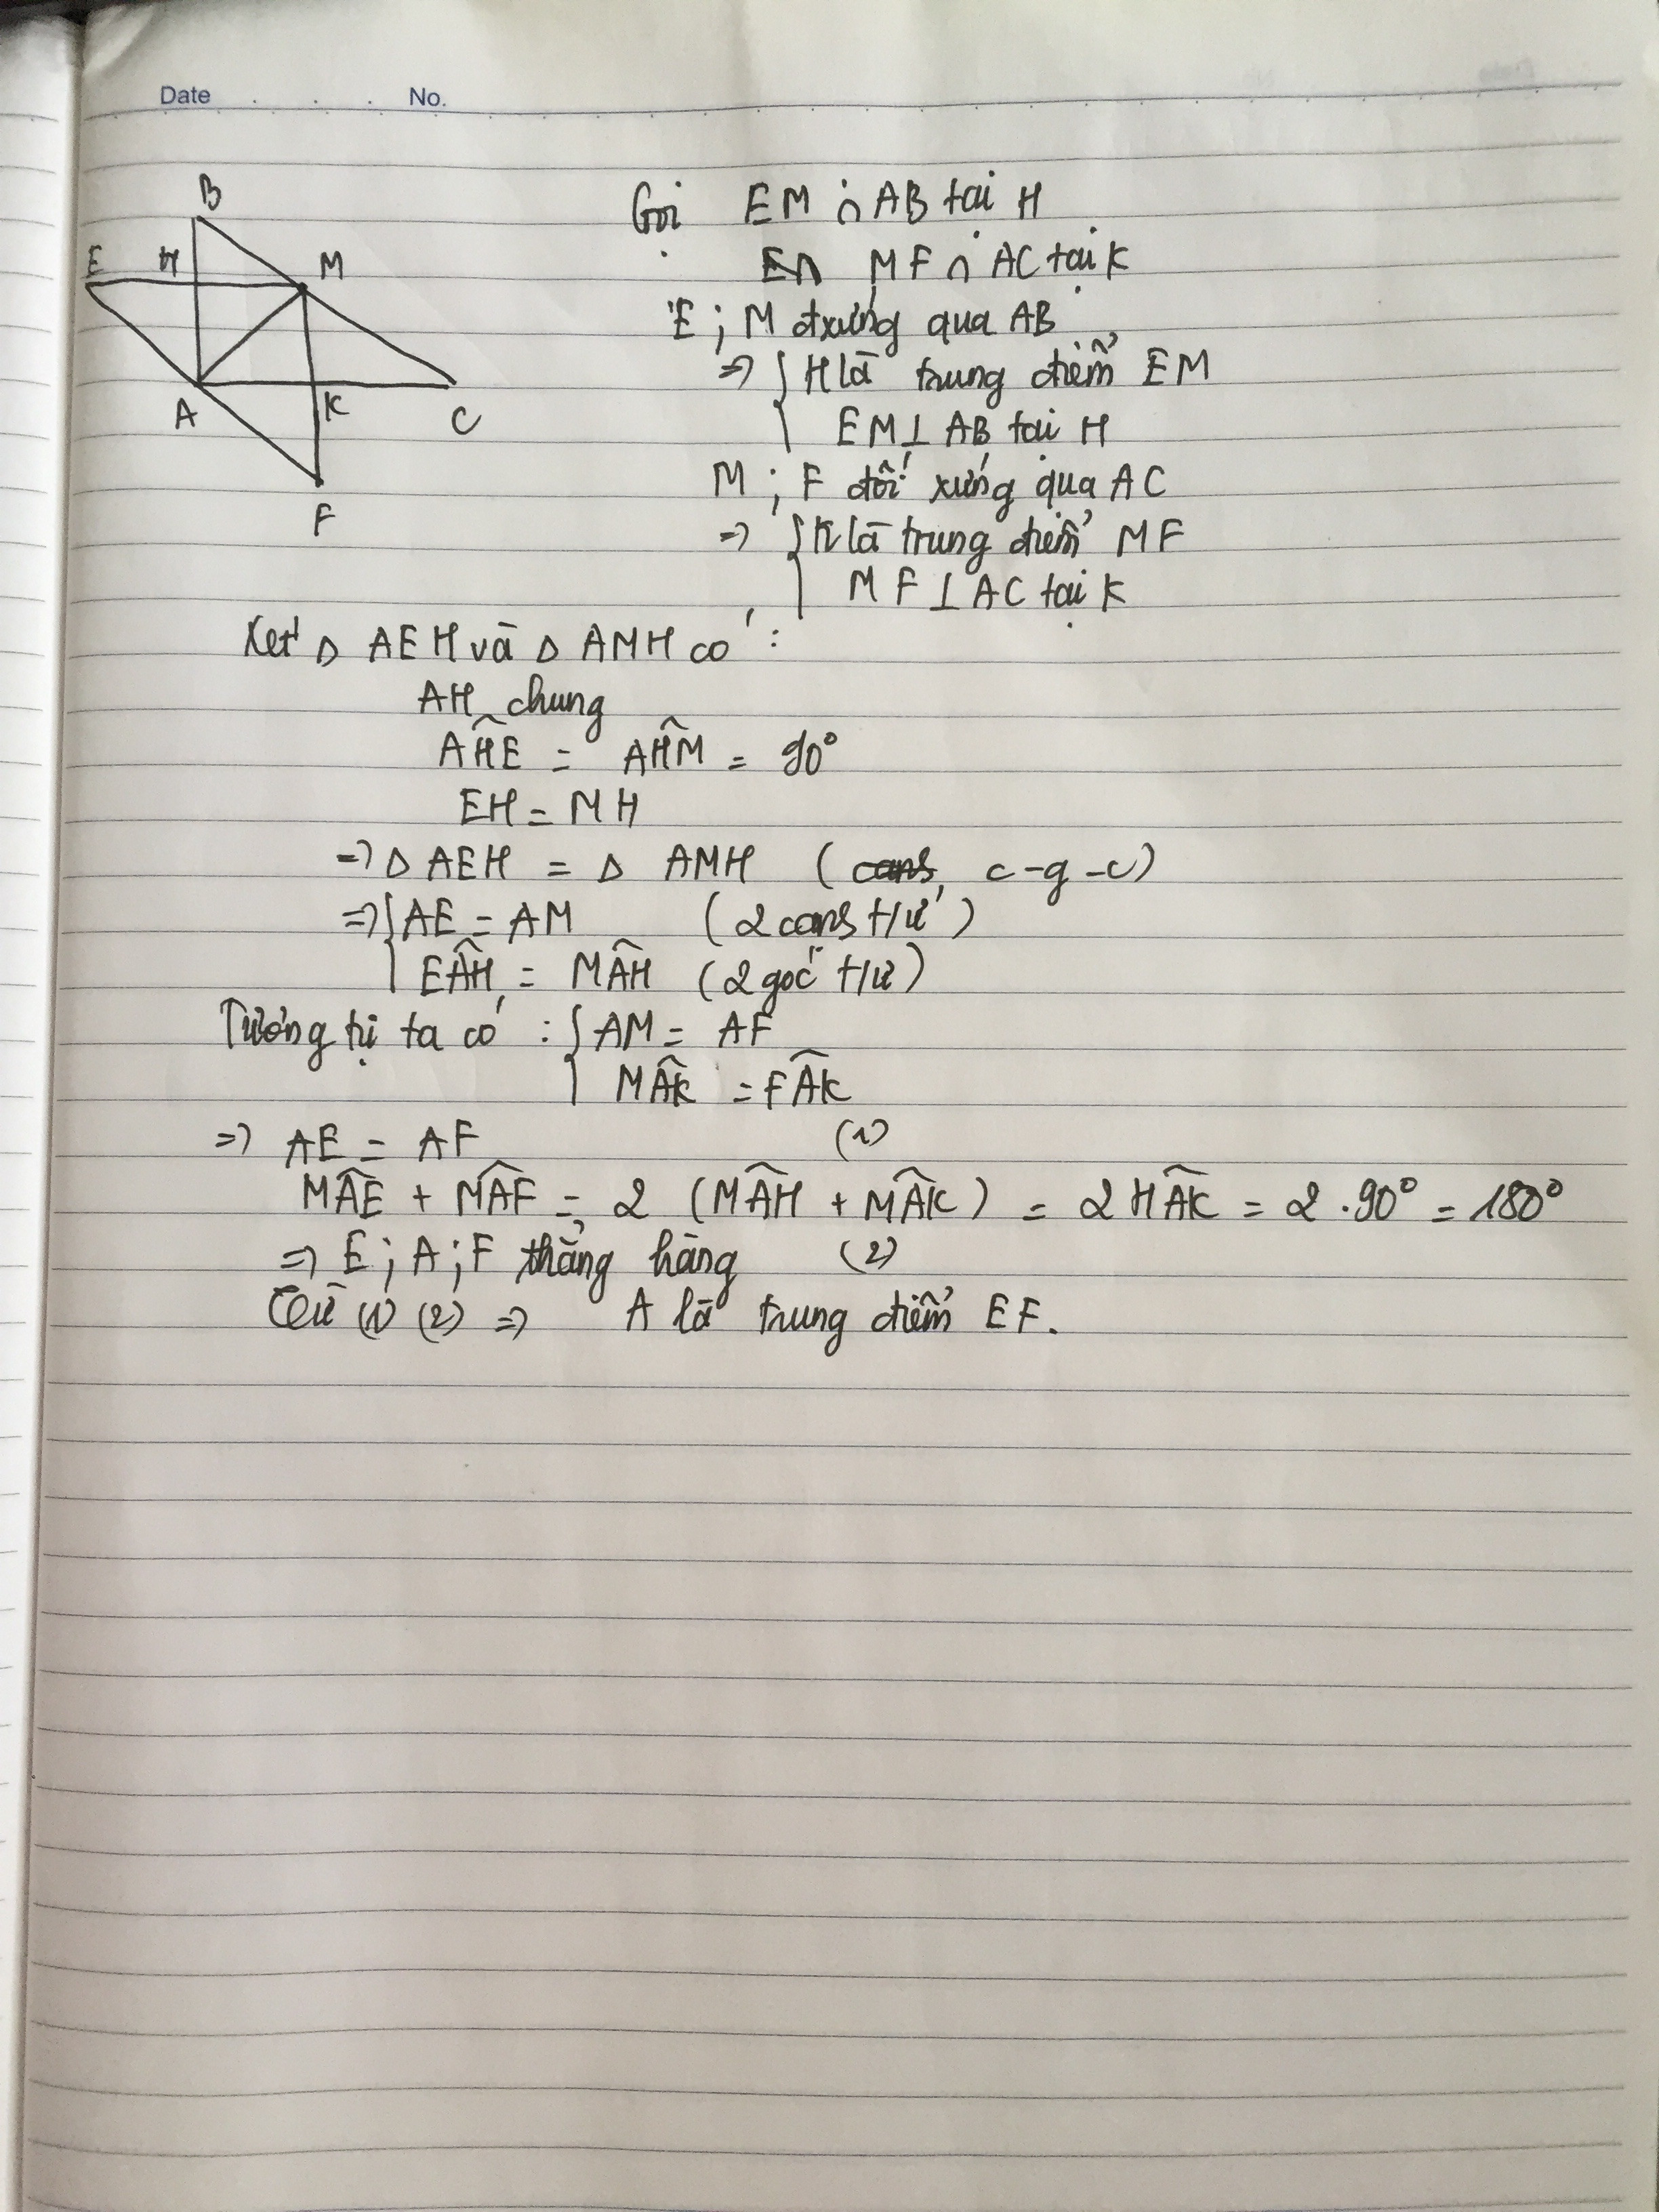 Date No.
B
E H M
A K C
F
Gọi EM ∩ AB tại H
MF ∩ AC tại K
E ; M đxứng qua AB
=> { H là trung điểm EM
EM ⊥ AB tại H
M ; F đối xứng qua AC
=> { K là trung điểm MF
MF ⊥ AC tại K
Xét Δ AEH và Δ AMH có :
AH chung
AĤE = AĤM = 90°
EH = MH
=> Δ AEH = Δ AMH ( c-g-c)
=> { AE = AM (2 cạnh t/ứ)
EÂH = MÂH (2 góc t/ứ)
Tương tự ta có : { AM = AF
MÂK = FÂK
=> AE = AF (1)
MÂE + MÂF = 2 (MÂH + MÂK) = 2 HÂK = 2 . 90° = 180°
=> E ; A ; F thẳng hàng (2)
Từ (1) (2) => A là trung điểm EF.